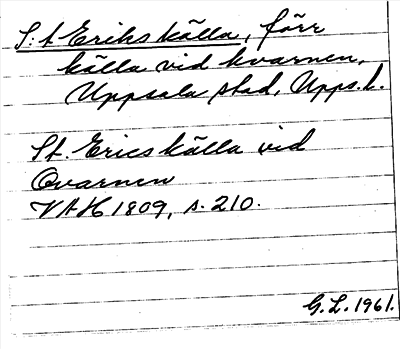 S:t Eriks källa, förr
källa vid kvarnen,
Uppsala stad, Upps.l.
St. Erics källa vid
Qvarnen
VAH 1809, s. 210.
G.L. 1961.